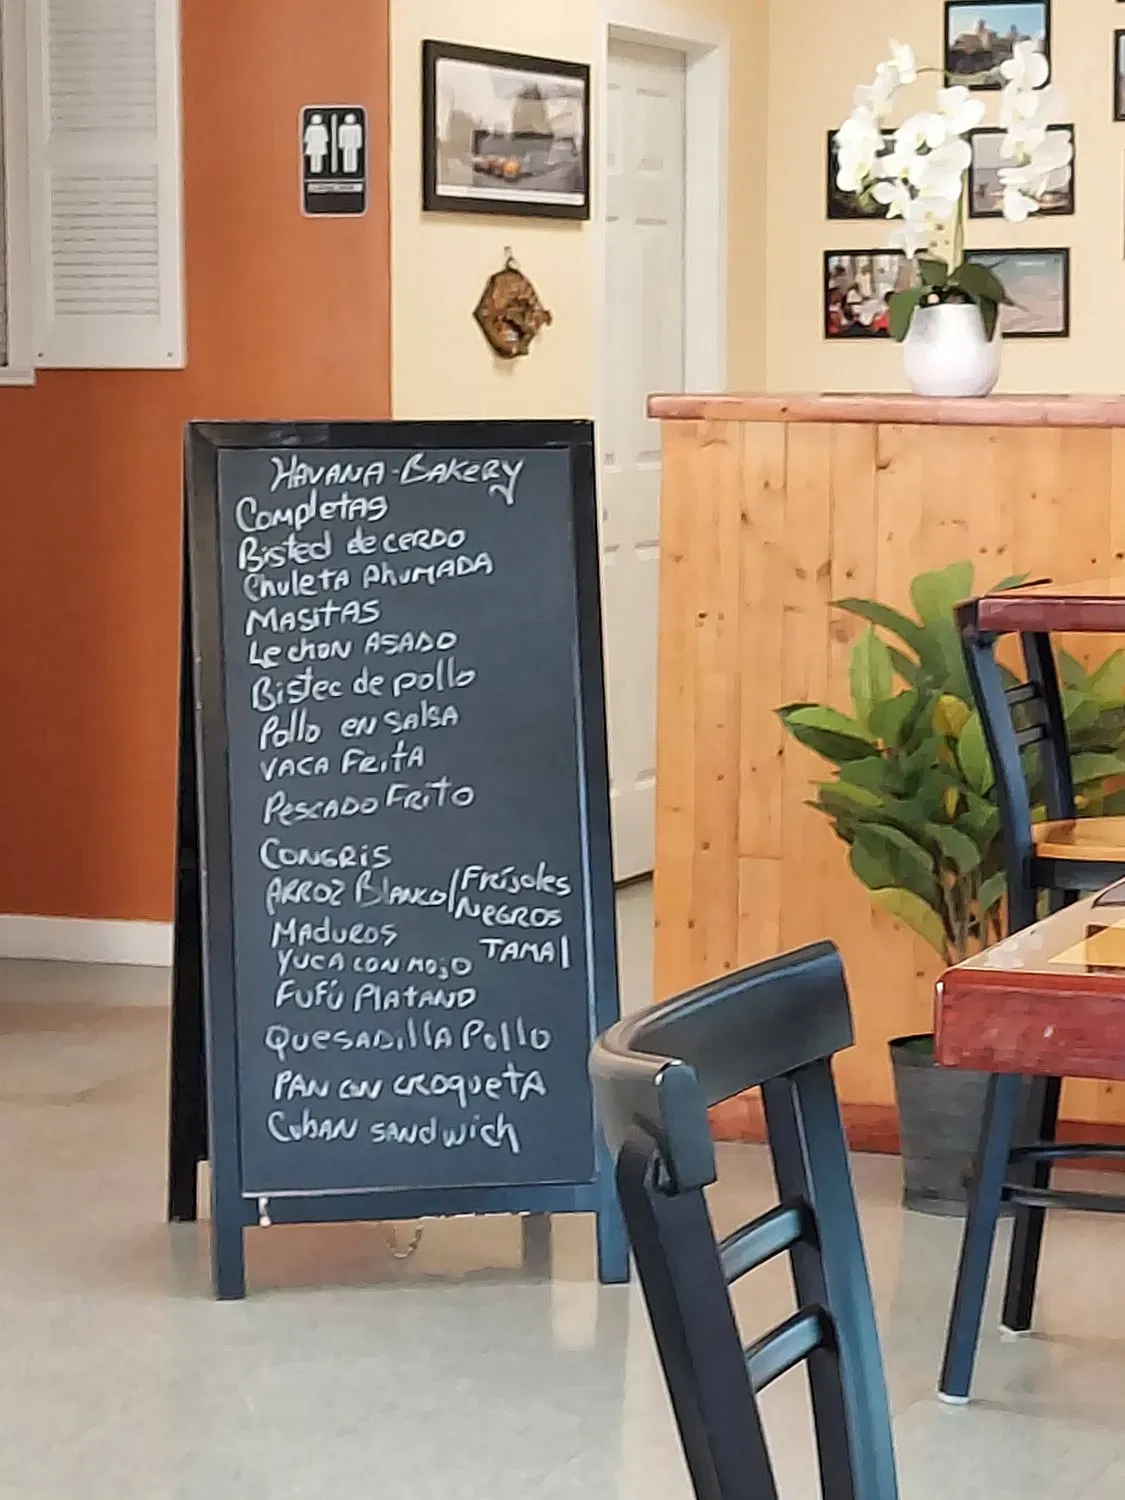 HAVANA-BAKERY
Completas
Bisted de CERDO
Chuleta AhumADA
MASITAS
Lechon ASADO
Bistec de pollo
Pollo en SALSA
VACA FRITA
Pescado Frito
CONGRIS
ARROZ BLANCO/Frijoles
NEGROS
MADUROS
TAMAl
YUCA CON MOJO
FUFÚ PlATANO
QUESADillA Pollo
PAN CON CROQUETA
CUBAN SANDwich